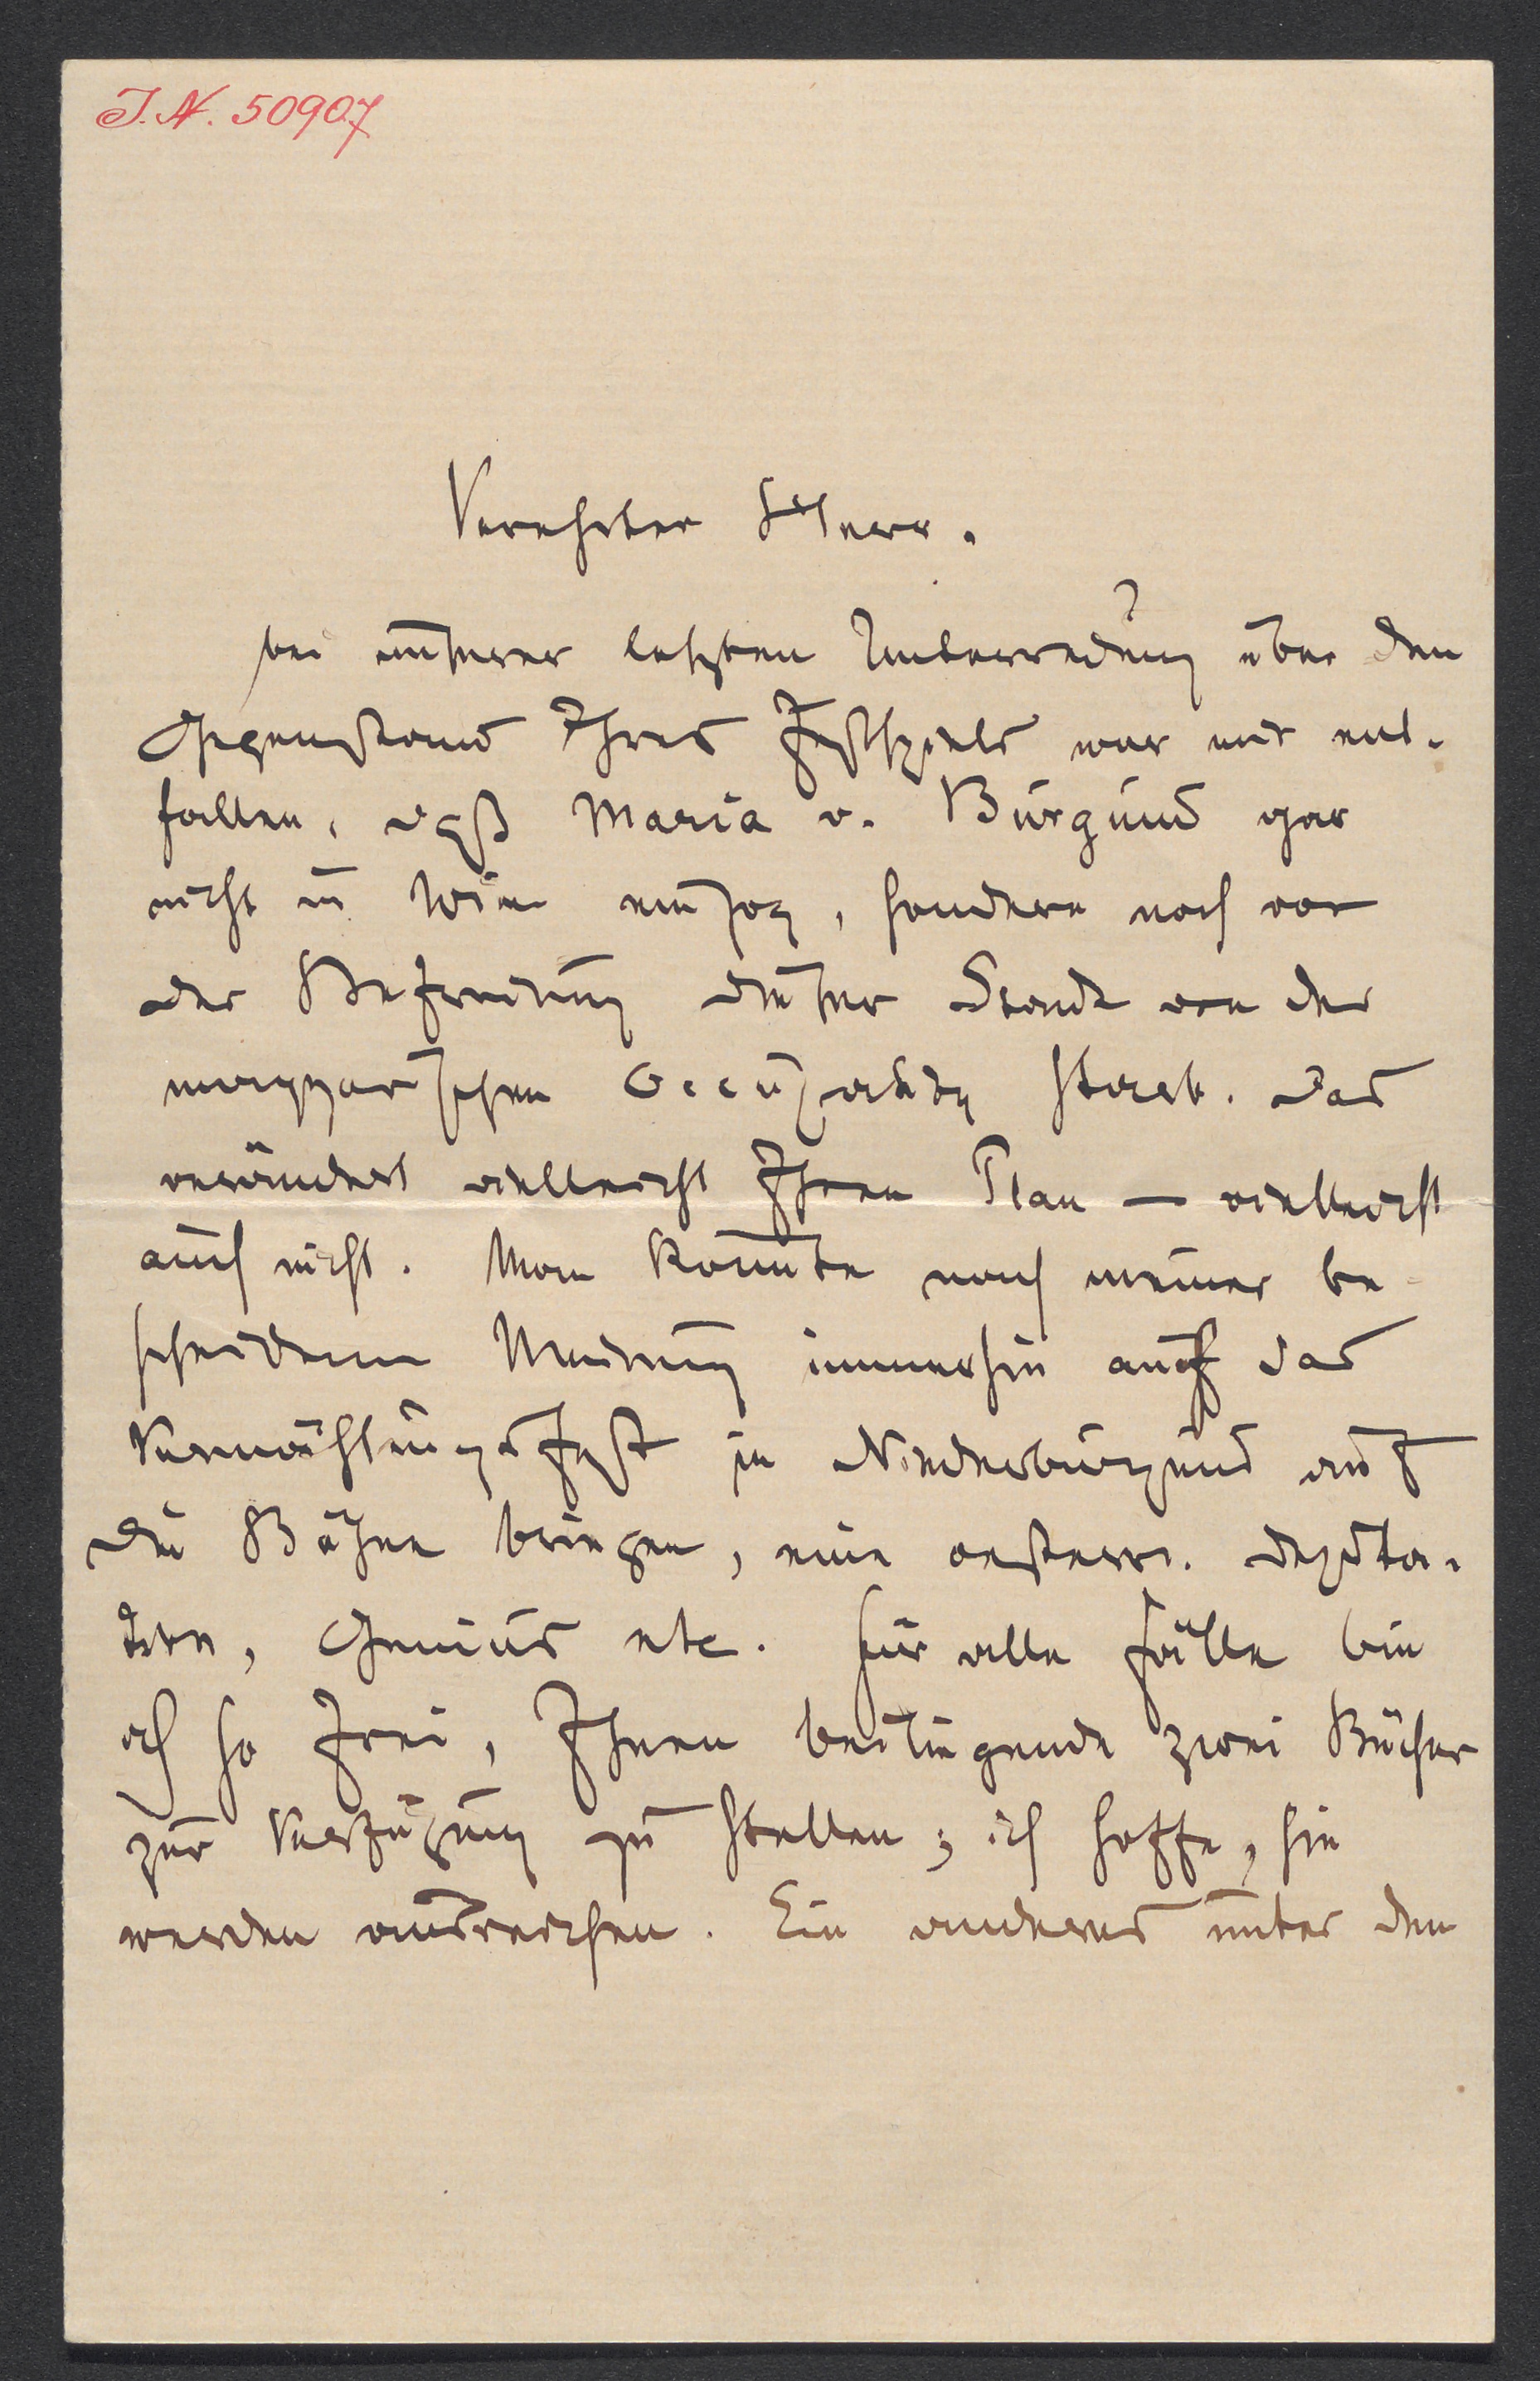 J. N. 50907
Verehrter Herr.
bei unserer letzten Unterredung über den
Gegenstand Ihres Festspiels war mir ent-
fallen, daß Maria v. Burgund gar
nicht in Wien einzog, sondern noch vor
der Befreiung dieser Stadt von der
magyarischen Occupation starb. Das
verändert vielleicht Ihren Plan — vielleicht
auch nicht. Man könnte nach meiner be-
scheidenen Meinung immerhin auch das
Vermählungsfest in Niederburgund auf
die Bühne bringen, eine oesterr. Deputa-
tion, Genius etc. Für alle Fälle bin
ich so frei, Ihnen beiliegende zwei Bücher
zur Verfügung zu stellen; ich hoffe, sie
werden ausreichen. Ein anderes unter den